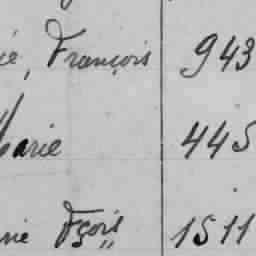 ie, François 943
Marie 445
rie Fçois 1511